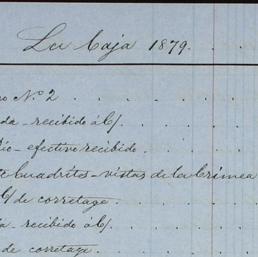 La Caja 1879.
No. 2
recibido á C/.
efectivo recibido.
Cuadritos - vistas de la Crimea
C/ de corretage.
recibido á C/.
de corretage.